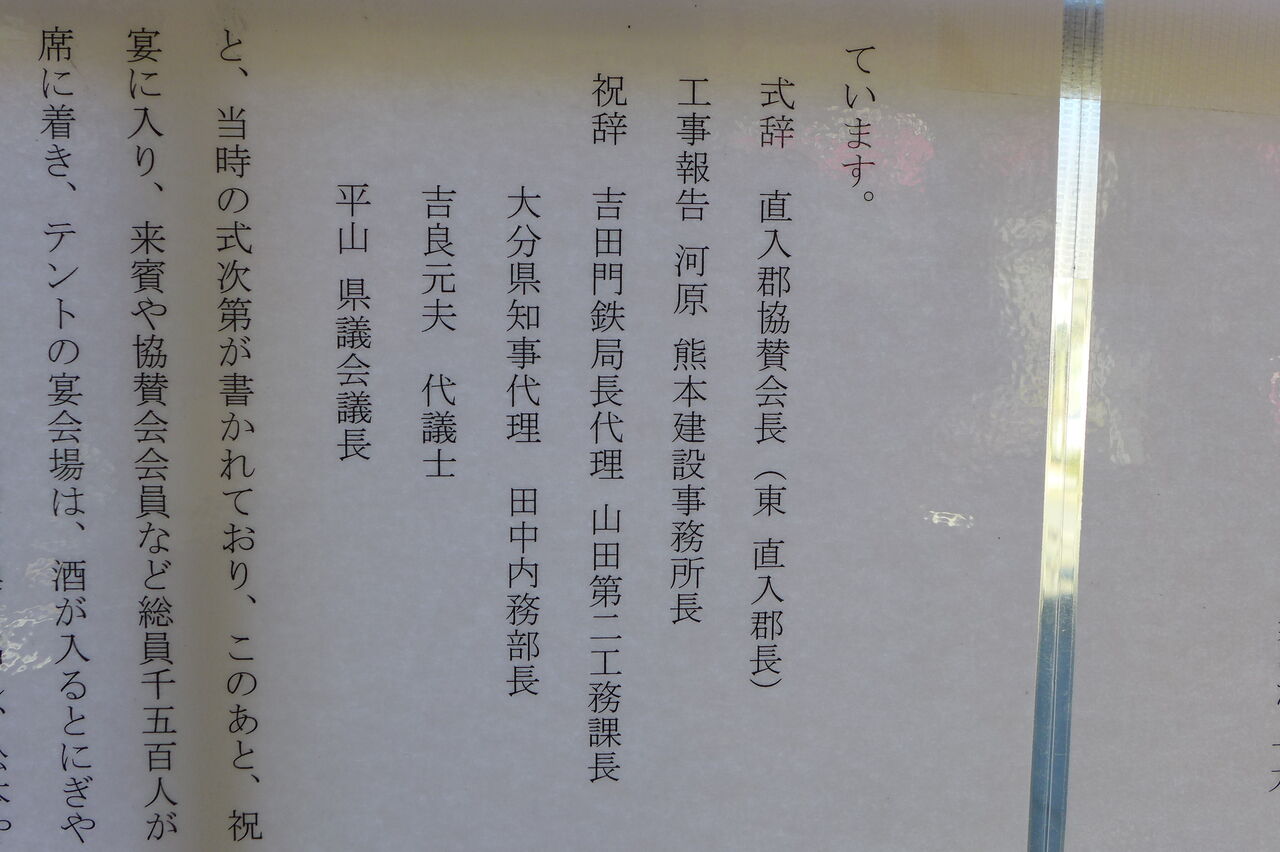 ています。
式辞　直入郡協賛会長（東　直入郡長）
工事報告　河原　熊本建設事務所長
祝辞　吉田門鉄局長代理　山田第二工務課長
大分県知事代理　田中内務部長
吉良元夫　代議士
平山　県議会議長
と、当時の式次第が書かれており、このあと、祝
宴に入り、来賓や協賛会会員など総員千五百人が
席に着き、テントの宴会場は、酒が入るとにぎや